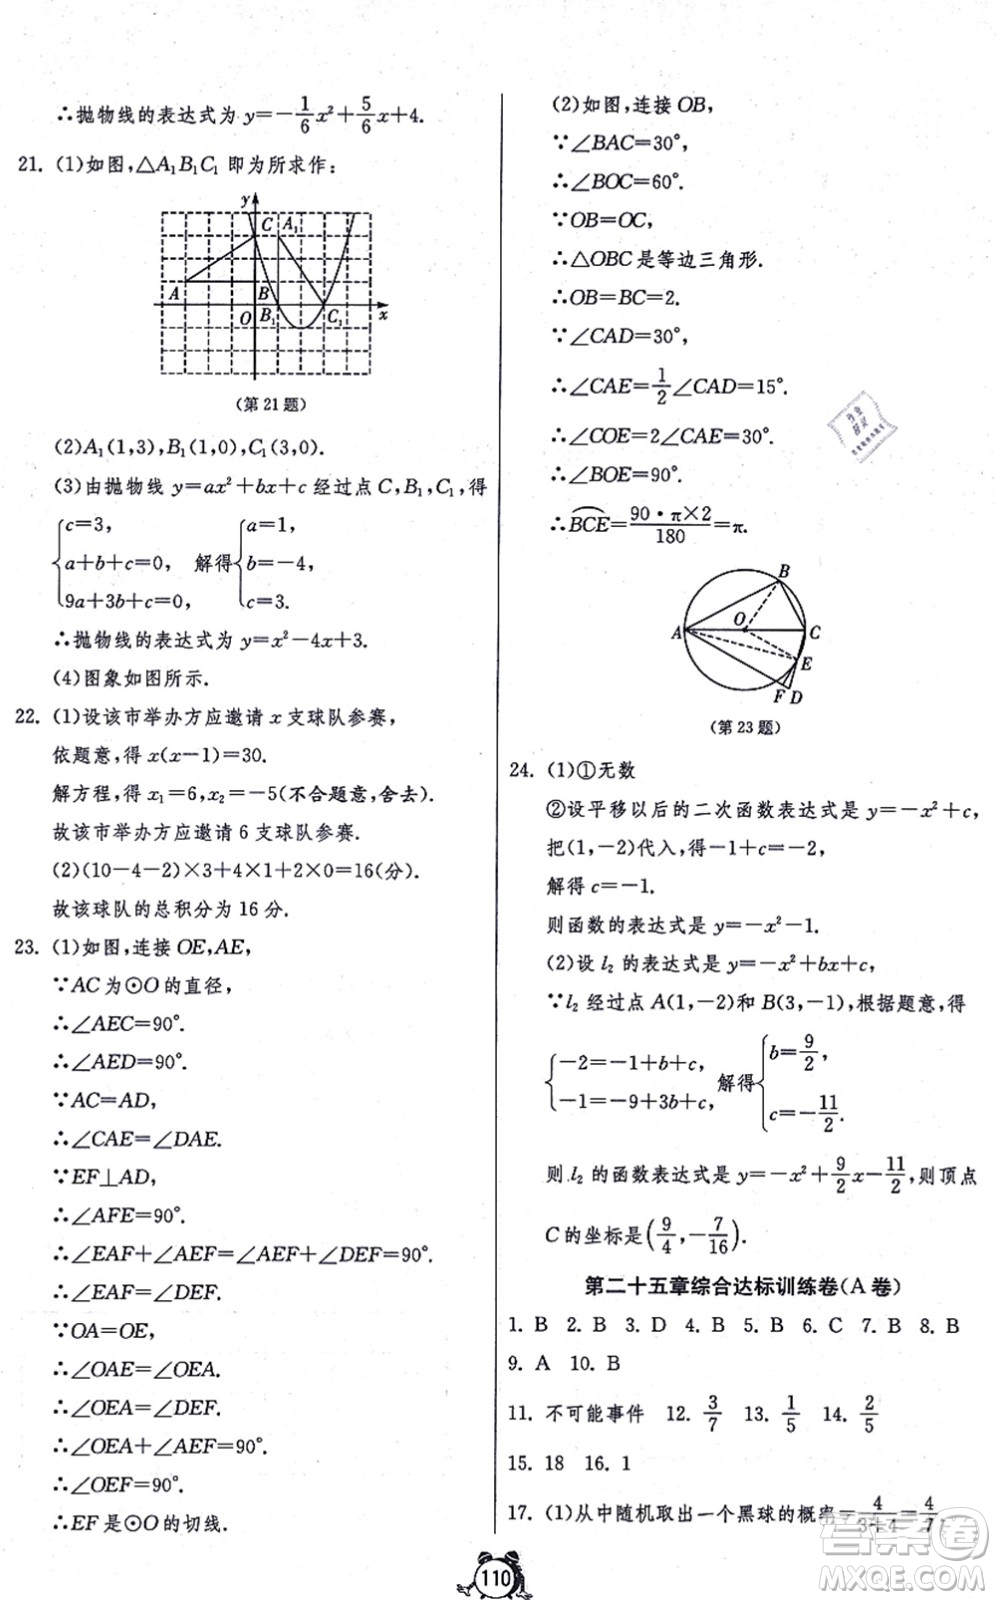 ∴抛物线的表达式为 y=-1/6x²+5/6x+4.
21. (1)如图,△A₁B₁C₁ 即为所求作:
y
C A₁
A B
O B₁ C₁ x
(第 21 题)
(2)A₁(1,3),B₁(1,0),C₁(3,0).
(3)由抛物线 y=ax²+bx+c 经过点 C,B₁,C₁,得
{c=3, a+b+c=0, 9a+3b+c=0, 解得{a=1, b=-4, c=3.
∴抛物线的表达式为 y=x²-4x+3.
(4)图象如图所示.
22. (1)设该市举办方应邀请 x 支球队参赛,
依题意,得 x(x-1)=30.
解方程,得 x₁=6,x₂=-5(不合题意,舍去).
故该市举办方应邀请 6 支球队参赛.
(2)(10-4-2)×3+4×1+2×0=16(分).
故该球队的总积分为 16 分.
23. (1)如图,连接 OE,AE,
∵AC 为⊙O 的直径,
∴∠AEC=90°.
∴∠AED=90°.
∵AC=AD,
∴∠CAE=∠DAE.
∵EF⊥AD,
∴∠AFE=90°.
∴∠EAF+∠AEF=∠AEF+∠DEF=90°.
∴∠EAF=∠DEF.
∵OA=OE,
∴∠OAE=∠OEA.
∴∠OEA=∠DEF.
∴∠OEA+∠AEF=90°.
∴∠OEF=90°.
∴EF 是⊙O 的切线.
(2)如图,连接 OB,
∵∠BAC=30°,
∴∠BOC=60°.
∵OB=OC,
∴△OBC 是等边三角形.
∴OB=BC=2.
∵∠CAD=30°,
∴∠CAE=1/2∠CAD=15°.
∴∠COE=2∠CAE=30°.
∴∠BOE=90°.
∴BCE⌒=90·π×2/180=π.
B
A O C
E
F D
(第 23 题)
24. (1)①无数
②设平移以后的二次函数表达式是 y=-x²+c,
把(1,-2)代入,得-1+c=-2,
解得 c=-1.
则函数的表达式是 y=-x²-1.
(2)设 l₂ 的表达式是 y=-x²+bx+c,
∵l₂ 经过点 A(1,-2)和 B(3,-1),根据题意,得
{-2=-1+b+c, -1=-9+3b+c, 解得{b=9/2, c=-11/2.
则 l₂ 的函数表达式是 y=-x²+9/2x-11/2,则顶点
C 的坐标是(9/4,-7/16).
第二十五章综合达标训练卷(A 卷)
1. B 2. B 3. D 4. B 5. B 6. C 7. B 8. B
9. A 10. B
11. 不可能事件 12. 3/7 13. 1/5 14. 2/5
15. 18 16. 1
17. (1)从中随机取出一个黑球的概率=4/(3+4)=4/7
110
答案圈
MXQE.COM